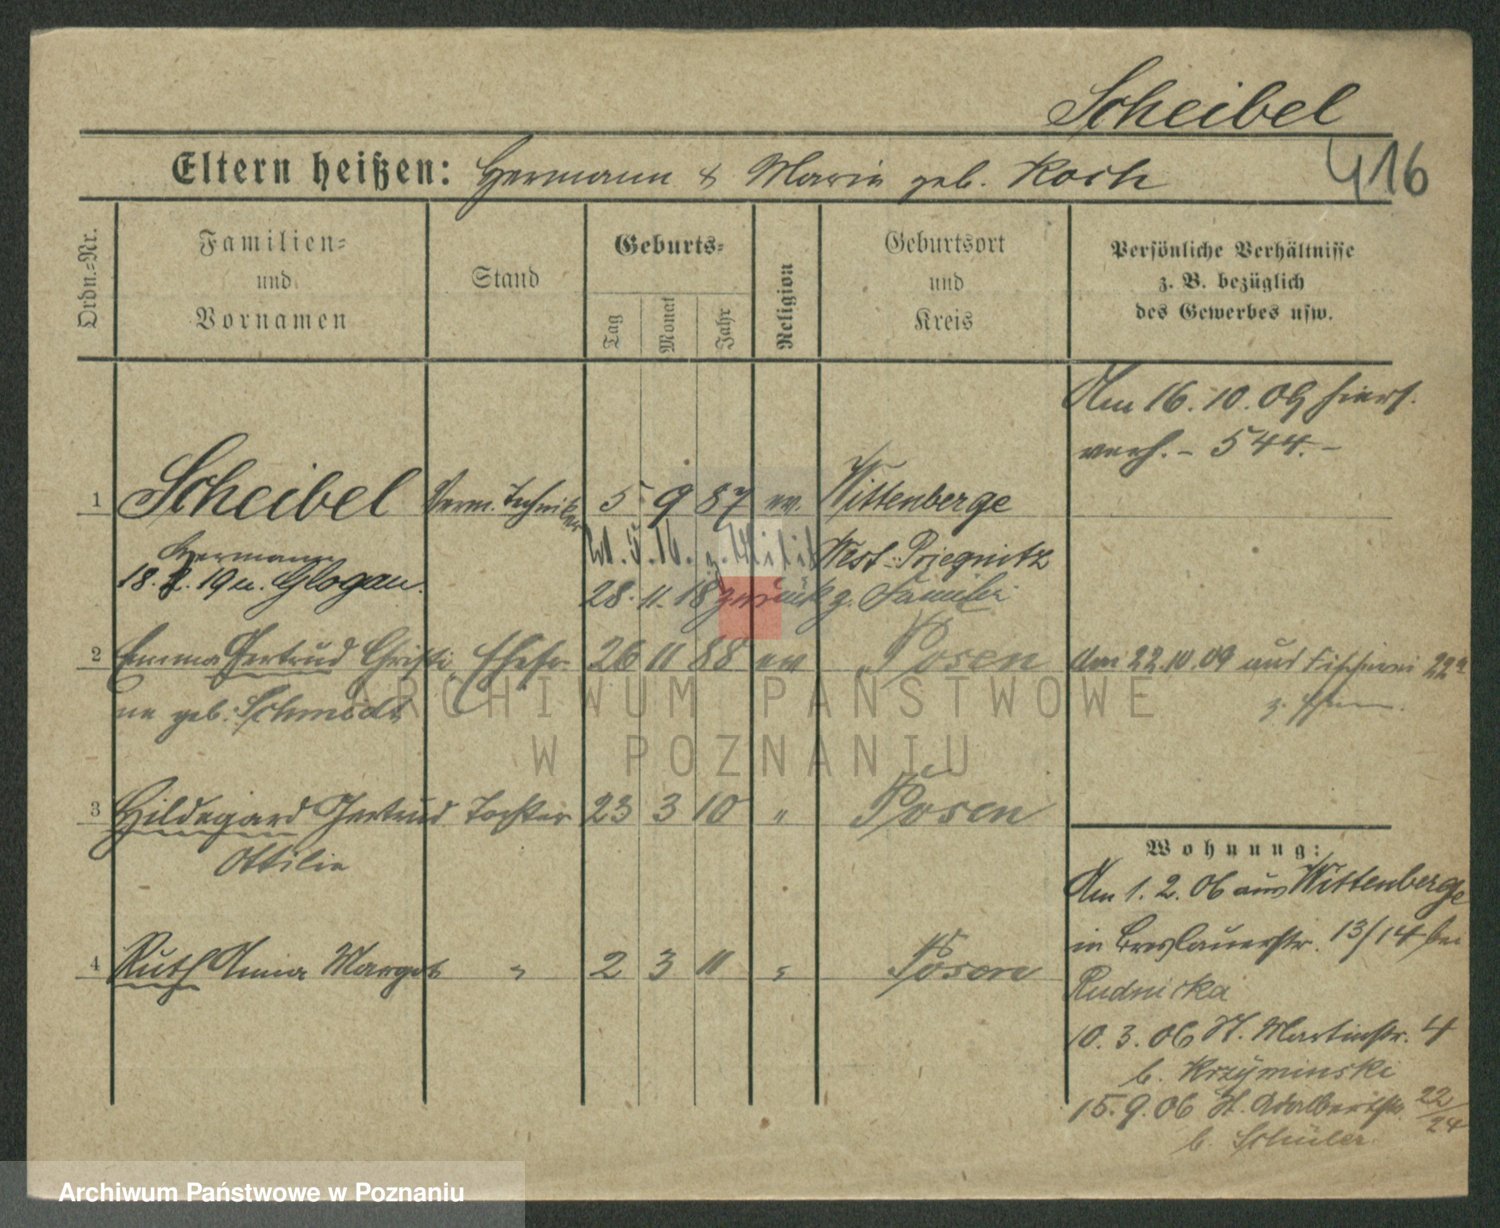 Scheibel
Eltern heißen: Hermann & Marie geb. Koch
416
Ordn.-Nr.
Familien-
und
Vornamen
Stand
Geburts-
Tag
Monat
Jahr
Religion
Geburtsort
und
Kreis
Persönliche Verhältnisse
z. B. bezüglich
des Gewerbes usw.
Am 16.10.09 hiers.
vereh. - 544.-
1 Scheibel Verm. Techniker 5 9 87 ev. Wittenberge
Hermann West-Priegnitz
18. 19 n. Glogau. 28.11.18 zurück z. Familie
2 Emma Gertrud Christi Ehefr. 26 11 88 ev Posen
ne geb. Schmidt
den 22.10.09 aus Fischerei 22a
z. Ehem.
3 Hildegard Gertrud Tochter 23 3 10 " Posen
Ottilie
4 Ruth Anna Margot " 2 3 11 " Posen
Wohnung:
Am 1.2.06 aus Wittenberge
in Breslauerstr. 13/14 bei
Rudnicka
10.3.06 St. Martinstr. 4
b. Krzyminski
15.9.06 St. Adalbertstr. 22/24
b. Schüler
ARCHIWUM PAŃSTWOWE
W POZNANIU
Archiwum Państwowe w Poznaniu